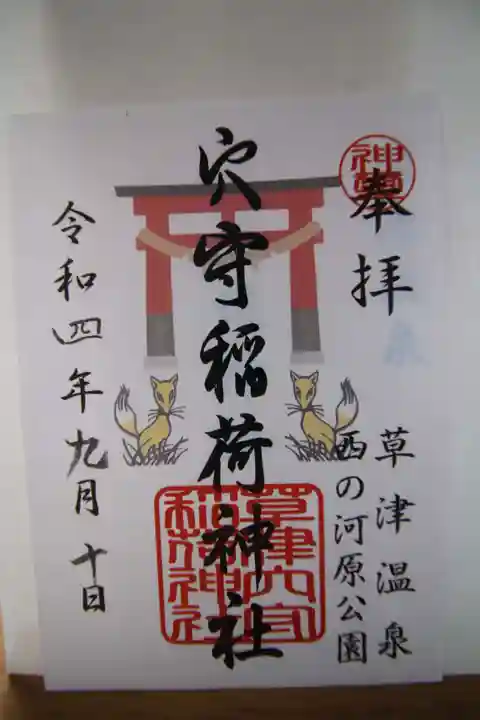 奉拝
草津温泉
西の河原公園
穴守稲荷神社
令和四年九月十日
草津穴守
稲荷神社